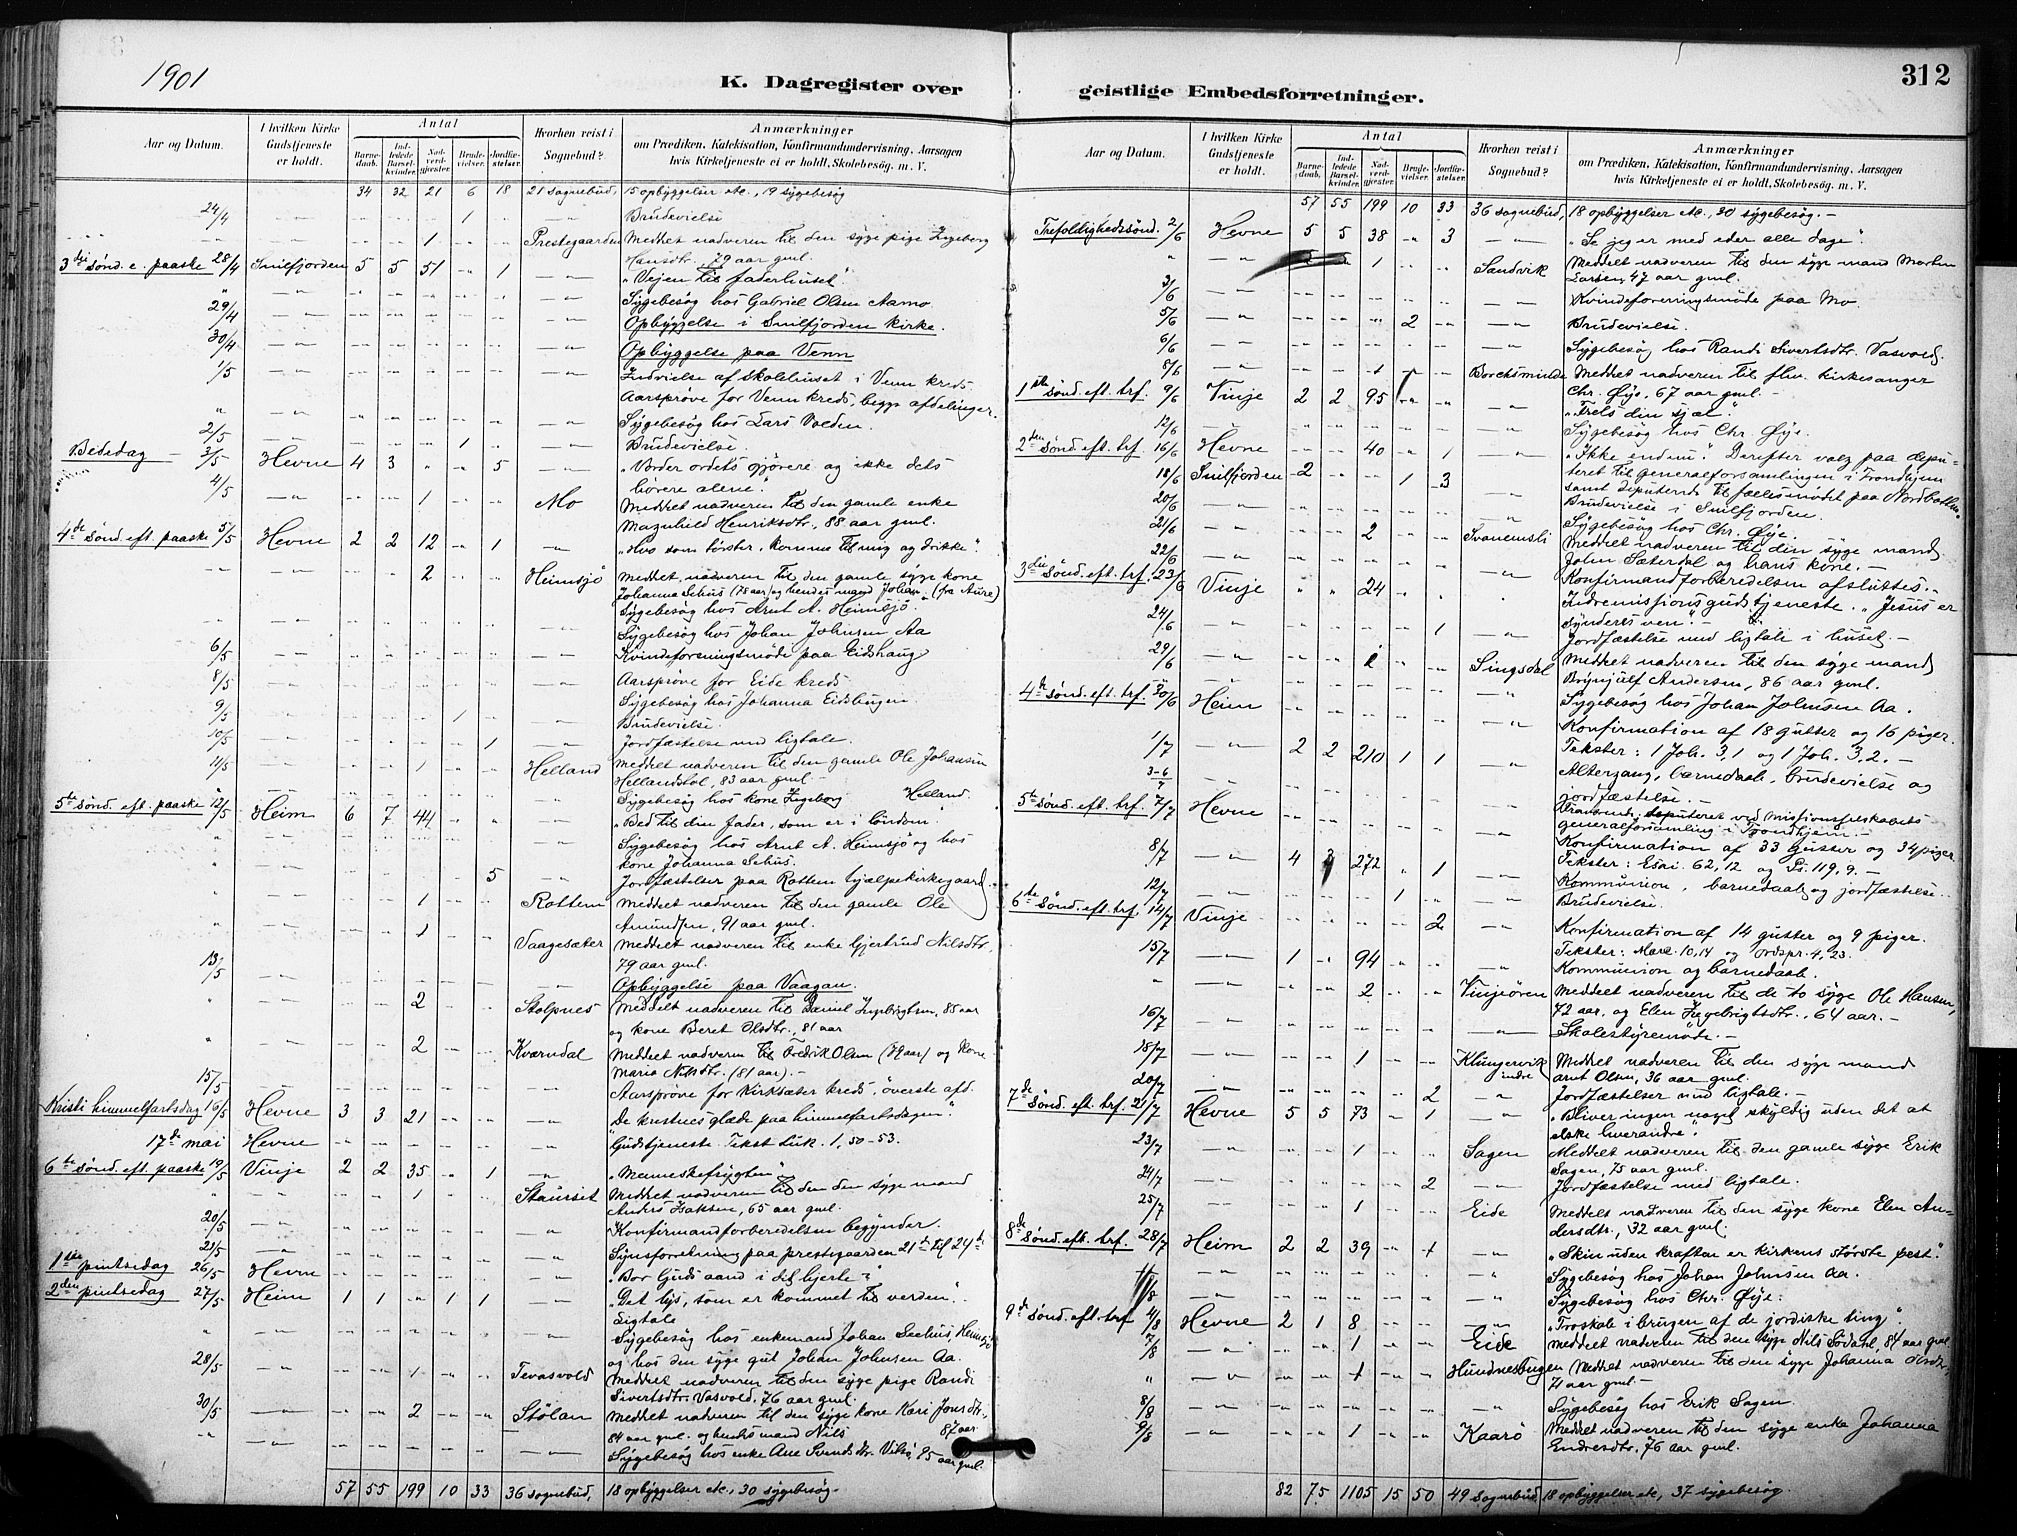 1901
K. Dagregister over
geistlige Embedsforretninger.
312
Aar og Datum.
I hvilken Kirke Gudstjeneste er holdt.
Antal
Barnedaab.
Indledede Barselkvinder.
Nadverdgjester.
Brudevielser.
Jordfæstelser.
Hvorhen reist i Sognebud?
Anmærkninger
om Prædiken, Katekisation, Konfirmandundervisning, Aarsagen
hvis Kirketjeneste ei er holdt, Skolebesøg. m. V.
34 32 21 6 18 21 sognebud, 15 opbyggelser etc., 19 sygebesøg
24/4 1 Brudevielse
1 Prestegaarden Meddelt nadveren til den syge pige Ingeborg
Hansdtr., 79 aar gml.
3die sønd. e. paaske 28/4 Snilfjorden 5 5 51 1 "Vejen til faderhuset".
" Sygebesøg hos Gabriel Olsen Aamo.
29/4 Opbyggelse i Snilfjorden kirke.
30/4 Opbyggelse paa Venn
1/5 Indvielse af skolehuset i Venn kreds.
Aarsprøve for Venn kreds, begge afdelinger.
" Sygebesøg hos Lars Volden.
2/5 1 Brudevielse.
Bededag 3/5 Hevne 4 3 " 5 "Vorder ordets gjørere og ikke dets
hørere alene".
4/5 1 Mo Meddelt nadveren til den gamle enke
Magnhild Henriksdtr., 88 aar gml.
4de sønd. eft. paaske 5/5 Hevne 2 2 12 1 "Hvo som tørster, komme til mig og drikke".
2 Heimsjø Meddelt nadveren til den gamle syge kone
Johanna Sehus (78 aar) og hendes mand Johan (fra Aure)
Sygebesøg hos Arnt A. Heimsjø.
Sygebesøg hos Johan Johnsen Aa
6/5 Kvindeforeningsmøde paa Eidshaug
8/5 Aarsprøve for Eide kreds
9/5 Sygebesøg hos Johanna Eidsbugen.
1 Brudevielse.
10/5 1 Jordfæstelse med ligtale.
11/5 1 Helland Meddelt nadveren til den gamle Ole Johansen
Hellandstøl, 83 aar gml.
" Sygebesøg hos kone Ingeborg Helland.
5te sønd. eft. paaske 12/5 Heim 6 7 44 "Bed til din fader, som er i løndom".
" Sygebesøg hos Arnt A. Heimsjø og hos
kone Johanna Sehus.
" 5 Jordfæstelser paa Rottem hjælpekirkegaard.
" 1 Rottem Meddelt nadveren til den gamle Ole
Amundsen, 91 aar gml.
" 1 Vaagesæter Meddelt nadveren til enke Gjertrud Nilsdtr.
79 aar gml.
13/5 Opbyggelse paa Vaagan.
" 2 Stolpnes Meddelt nadveren til Daniel Ingebrigtsen, 85 aar
og kone Beret Olsdtr., 81 aar
" 2 Kværndal Meddelt nadveren til Fredrik Olsen (79 aar) og kone
Maria Nilsdtr. (81 aar).
15/5 Aarsprøve for Kirksæter kreds, øverste afd.
Kristi himmelfartsdag 16/5 Hevne 3 3 21 "De kristnes glæde paa himmelfartsdagen".
17de mai Hevne Gudstjeneste. Tekst Luk. 1, 50-53.
6te sønd. eft. paaske 19/5 Vinje 2 2 35 1 "Menneskefrygten"
" 1 Staurset Meddelt nadveren til den den syge mand
Anders Isaksen, 65 aar gml.
20/5 Konfirmandforberedelsen begynder.
21/5 Synsforretning paa prestegaarden 21de til 24de
1ste pintsedag 26/5 Hevne "Bor Guds aand i dit hjerte?"
2den pintsedag 27/5 Heim 1 1 1 1 "Det lys, som er kommet til verden".
Ligtale
" Sygebesøg hos enkemand Johan Seehus, Heimsjø
og hos den syge gut Johan Johnsen Aa.
28/5 1 Tevasvold Meddelt nadveren til den syge pige Randi
Sivertsdtr. Vasvold, 76 aar gml.
30/5 2 Stølan Meddelt nadveren til den syge kone Kari Jonsdtr.,
84 aar gml. og hendes mand Nils 87 aar
" Sygebesøg hos enke Ane Svendsdtr. Vitsø, 85 aar gml.
57 55 199 10 33 36 sognebud, 18 opbyggelser etc., 30 sygebesøg.
Aar og Datum.
I hvilken Kirke Gudstjeneste er holdt.
Antal
Barnedaab.
Indledede Barselkvinder.
Nadverdgjester.
Brudevielser.
Jordfæstelser.
Hvorhen reist i Sognebud?
Anmærkninger
om Prædiken, Katekisation, Konfirmandundervisning, Aarsagen
hvis Kirketjeneste ei er holdt, Skolebesøg. m. V.
57 55 199 10 33 36 sognebud, 18 opbyggelser etc., 30 sygebesøg.
Trefoldighedssønd. 2/6 Hevne 5 5 38 3 "Se jeg er med eder alle dage".
" 1 Sandvik Meddelt nadveren til den syge mand Morten
Larsen, 47 aar gml.
3/6 Kvindeforeningsmøde paa Mo.
5/6 2 Brudevielse.
6/6 Sygebesøg hos Randi Sivertsdtr. Vasvold.
8/6 1 Borchsminde Meddelt nadveren til fhv. kirkesanger
Chr. Øye, 67 aar gml.
1ste sønd. eft. trf. 9/6 Vinje 2 2 95 "Frels din sjæl".
12/6 Sygebesøg hos Chr. Øye.
2den sønd. eft. trf. 16/6 Hevne 40 1 "Ikke endnu". Derefter valg paa deputeret
til generalforsamlingen i Trondhjem
samt deputerede til fællesmødet paa
18/6 Snilfjorden 2 1 3 Brudevielse i Snilfjorden.
20/6 Sygebesøg hos Chr. Øye.
21/6 2 Svanemsli Meddelt nadveren til den syge mand
John Sæterdal og hans kone.
22/6 Konfirmandforberedelsen afsluttes.
3die sønd. eft. trf. 23/6 Vinje " " 24 Indremissionsgudstjeneste. "Jesus er
synderes ven".
24/6 1 Jordfæstelse med ligtale i huset.
29/6 1 Singsdal Meddelt nadveren til den syge mand
Brynjulf Andersen, 86 aar gml.
" Sygebesøg hos Johan Johnsen Aa.
4de sønd. eft. trf. 30/6 Heim Konfirmation af 18 gutter og 16 piger.
Tekster: 1 Joh. 3,1 og 1 Joh. 3,2.
1/7 2 2 210 1 1 Altergang, barnedaab, brudevielse og
jordfæstelse.
3-6/7 deputeret ved Missionsselskabets
generalforsamling i Trondhjem.
5te sønd. eft. trf. 7/7 Hevne Konfirmation af 33 gutter og 34 piger.
Tekster: Esai. 62, 12 og Ps. 119, 9.
8/7 4 3 272 " 1 Kommunion, barnedaab og jordfæstelse.
12/7 1 Brudevielse.
6te sønd. eft. trf. 14/7 Vinje 2 Konfirmation af 14 gutter og 9 piger.
Tekster: Marc. 10, 14 og Ordspr. 4, 23.
15/7 1 94 Kommunion og barnedaab.
" 2 Vinjeøren Meddelt nadveren til de to syge Ole Hansen,
72 aar, og Elen Ingebrigtsdtr., 64 aar.
16/7 Skolestyremøde.
18/7 1 Klungervik indre Meddelt nadveren til den syge mand
Arnt Olsen, 36 aar gml.
20/7 2 Jordfæstelser med ligtale.
7de sønd. eft. trf. 21/7 Hevne 5 5 73 1 "Bliver ingen noget skyldig uden det at
elske hverandre".
23/7 1 Sagen Meddelt nadveren til den gamle syge Erik
Sagen, 75 aar gml.
24/7 2 Jordfæstelse med ligtale.
25/7 1 Eide Meddelt nadveren til den syge kone Elen Andersdtr.,
32 aar gml.
8de sønd. eft. trf. 28/7 Heim 2 2 39 1 "Skin uden kraften er kirkens største pest".
" Sygebesøg hos Johan Johnsen Aa.
1/8 Sygebesøg hos Chr. Øye.
9de sønd. eft. trf. 4/8 Hevne 2 1 8 "Troskab i brugen af de jordiske ting".
7/8 1 Eide Meddelt nadveren til den syge Nils Sødahl, 84 aar gml.
" 1 Hundnesbugen Meddelt nadveren til den syge Johanna Olsdtr.,
71 aar gml.
8/8 Sygebesøg hos Erik Sagen.
9/8 1 Kaarø Meddelt nadveren til den syge enke Johanna
Endresdtr., 76 aar gml.
82 75 1105 15 50 49 sognebud, 18 opbyggelser etc., 37 sygebesøg.